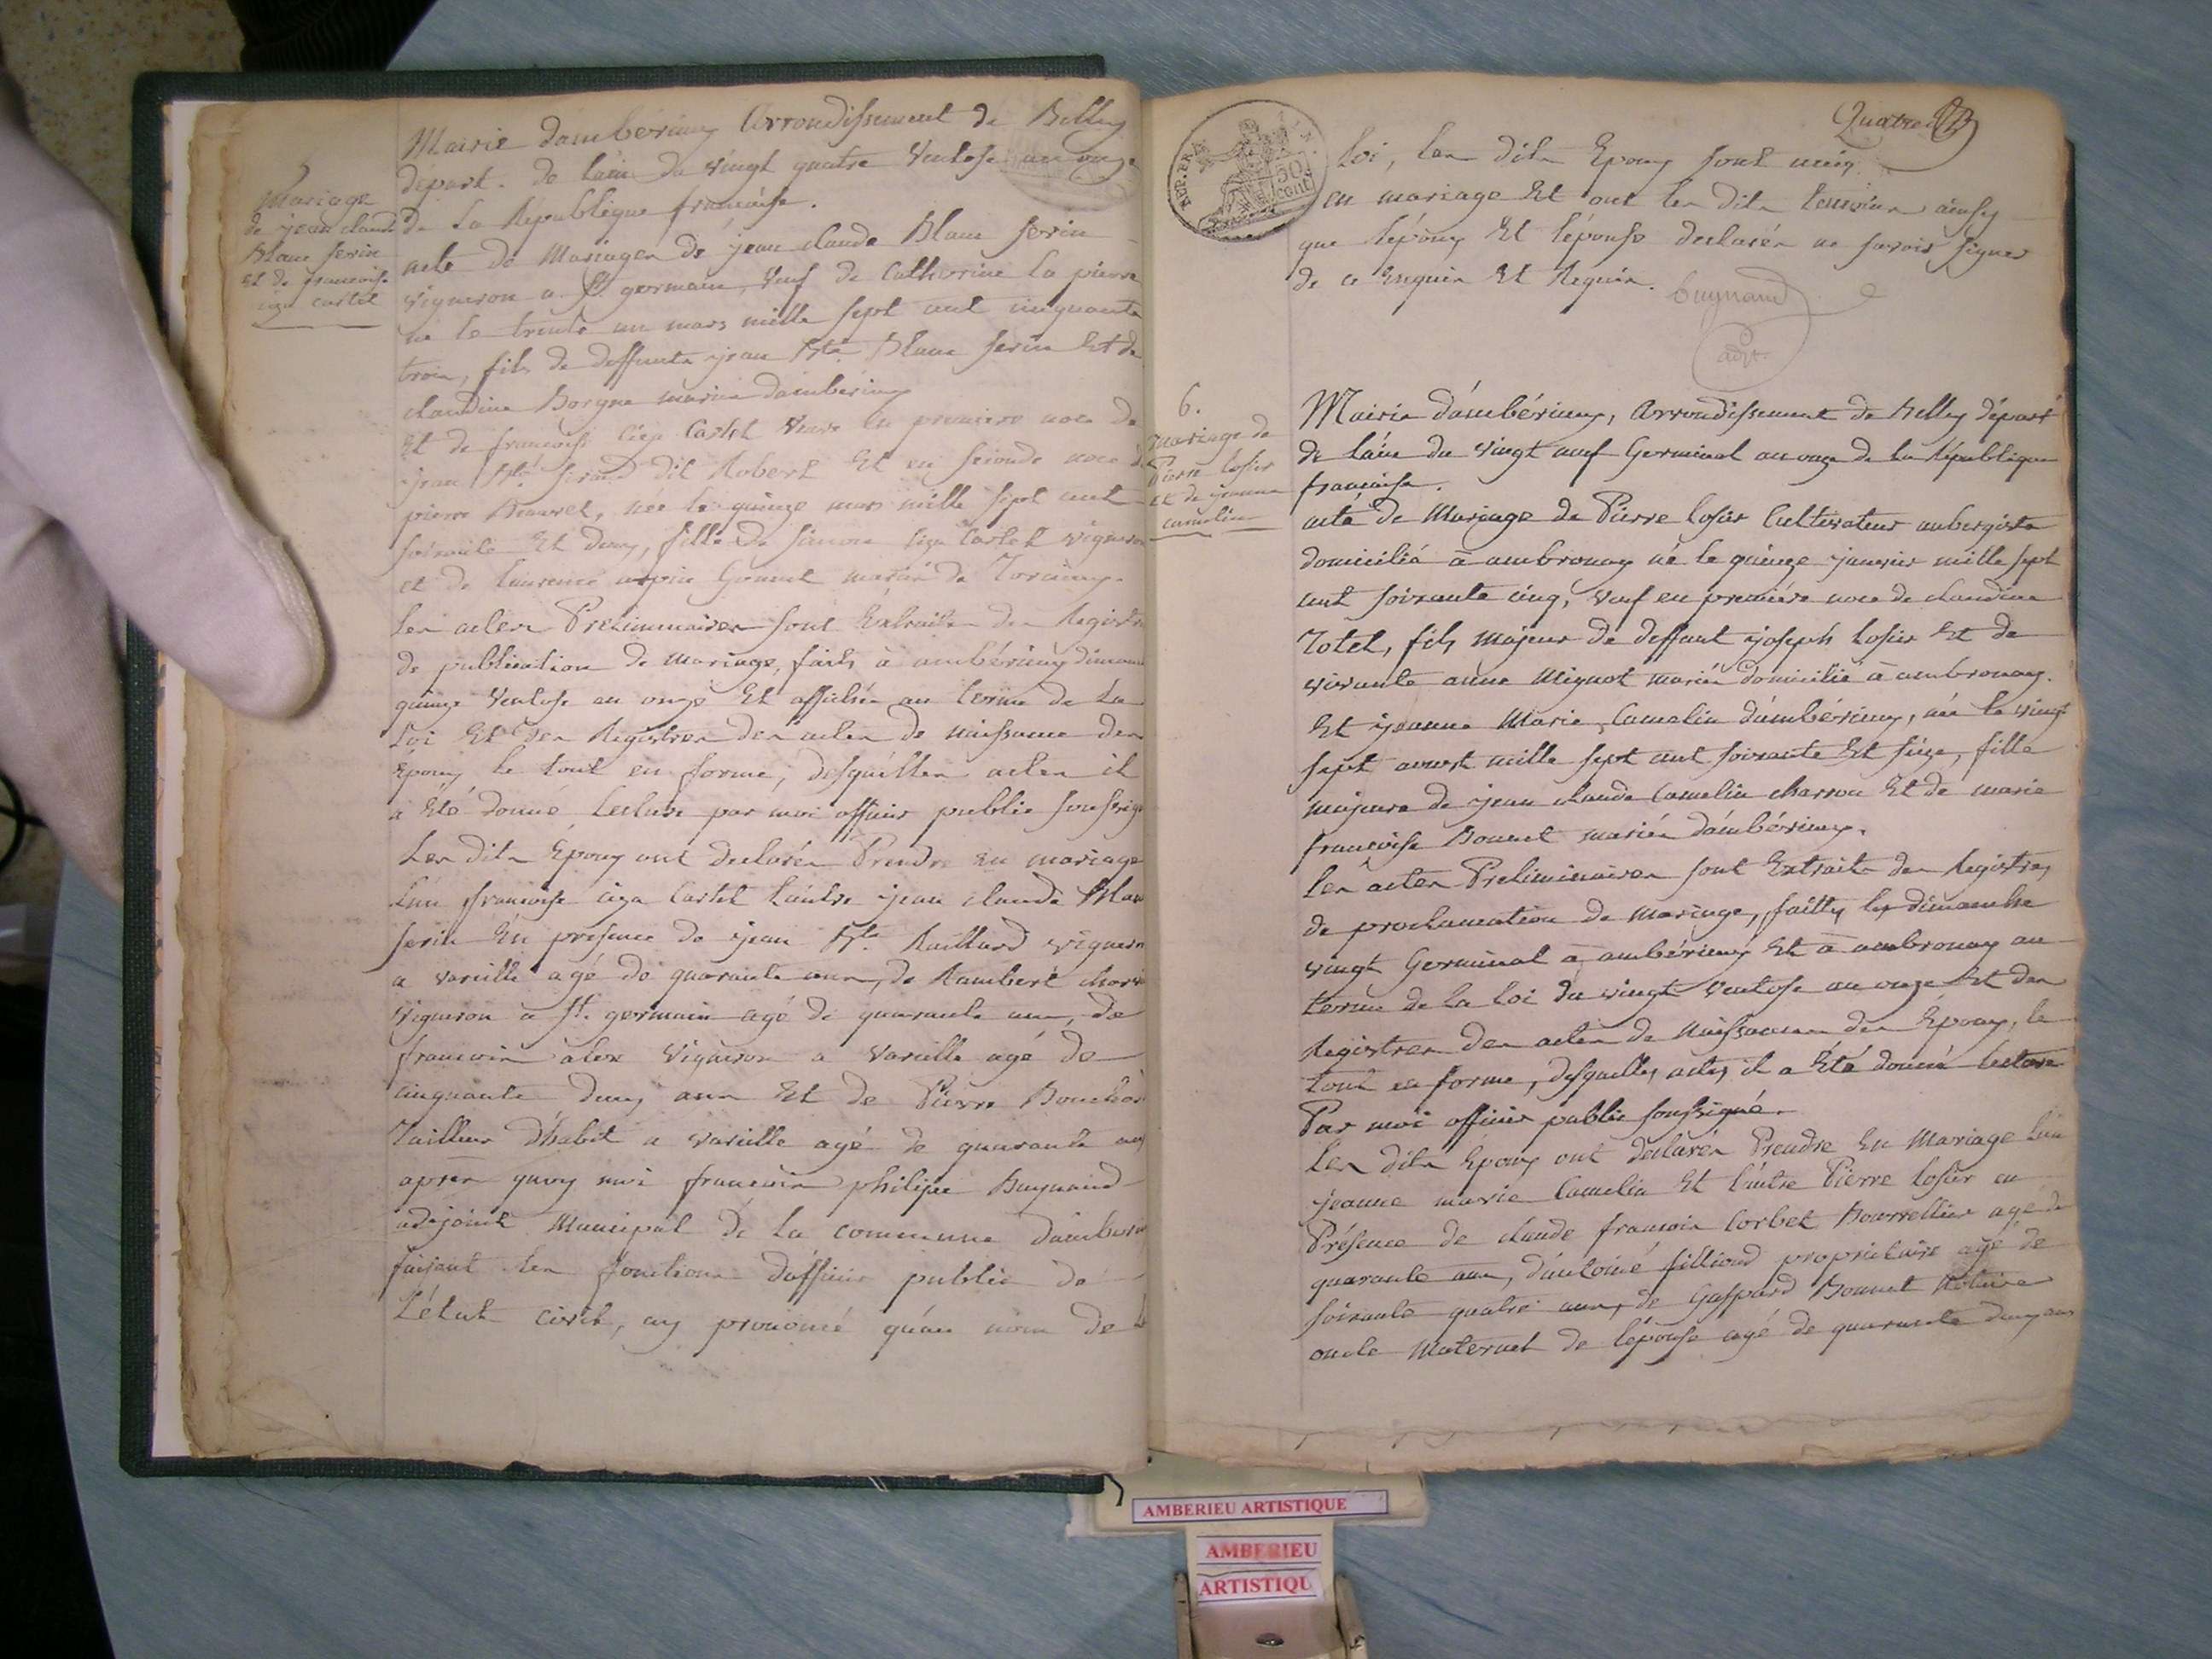 5
Mariage
de jean claude
Blanc ferin
et de francoise
ciza cartet
Mairie damberieux Arrondissement de Belley
depart. de lain du vingt quatre Ventose an onze
de La République francaise.
acte de Mariage de jean claude Blanc ferin
vigneron a St. germain, veuf de Catherine La pierre
né le trente un mars mille sept cent cinquante
trois, fils de deffunts jean Bte Blanc ferin Et de
claudine Borgne mariés dambérieux
Et de francoise Ciza Cartet Veuve En premiere noce de
jean Bte. dit Robert Et en seconde noce de
pierre née le quinze mars mille sept cent
soixante Et deux, fille de simon ciza Cartet vigneron
et de laurence Gonnet mariés de Torcieux.
Les actes Preliminaires sont Extraits des Registres
de publication de mariage, faits à ambérieux dimanche
quinze Ventose an onze Et affichés au terme de La
Loi Et des Registres des actes de naissance des
Epoux le tout en forme, desquelles actes il
a Eté donné Lecture par moi officier public soussigné
Les dits Epoux ont declarés Prendre En mariage
L'un francoise ciza Cartet L'autre jean claude Blanc
ferin En presence de jean Bte. Raillard vigneron
a vareille agé de quarante ans, de Rambert
vigneron a St. germain agé de quarante ans, de
francois alex Vigneron a Vareille agé de
cinquante deux ans Et de Pierre
Tailleur d'habit a vareille agé de quarante ans
apres quoy moi francois philipe Buynand
adejoint Municipal de La commune dambérieux
faisant les fonctions d'officier public de
L'état civil, ay prononcé qu'au nom de la
Quatre
REP. FRA.
50
cent.
Loi, les dits Epoux sont unis
en mariage Et ont les dits temoins ainsy
que l'epoux Et l'épouse declarés ne savoir signer
de ce Enquis Et Requis.
buynand
adjt.
6.
mariage de
Pierre losier
et de jeanne
camelin
Mairie d'ambérieux, Arrondissement de Belley départ
de lain du vingt neuf Germinal an onze de La République
francaise.
acte de Mariage de Pierre losier Cultivateur aubergiste
domicilié à ambronay né le quinze janvier mille sept
cent soixante cinq, veuf en premiere noce de claudine
Totet, fils majeur de deffunt joseph losier Et de
vivante anne Mignot mariés domicilié à ambronay.
Et jeanne Marie Camelin d'ambérieux, née le vingt
sept aoust mille sept cent soixante Et seize, fille
majeure de jean claude Camelin charron Et de marie
francoise Bonnet mariés d'ambérieux.
Les actes Preliminaires sont Extraits des Registres
de proclamation de mariage, faitts les dimanche
vingt Germinal à ambérieux Et à ambronay au
terme de La Loi du vingt Ventose an onze Et des
Registres des actes de Naissances des Epoux, le
tout en forme, desquelles actes il a Eté donné lecture
Par moi officier public soussigné.
Les dits Epoux ont declarés Prendre En Mariage l'un
jeanne marie Camelin Et l'autre Pierre losier en
Présence de claude francois Corbet Bourrellier agé de
quarante ans, d'antoine filliond proprietaire agé de
soixante quatre ans, de Gaspard Bonnet Notaire
oncle Maternel de l'épouse agé de quarante deux ans
AMBERIEU ARTISTIQUE
AMBERIEU
ARTISTIQU